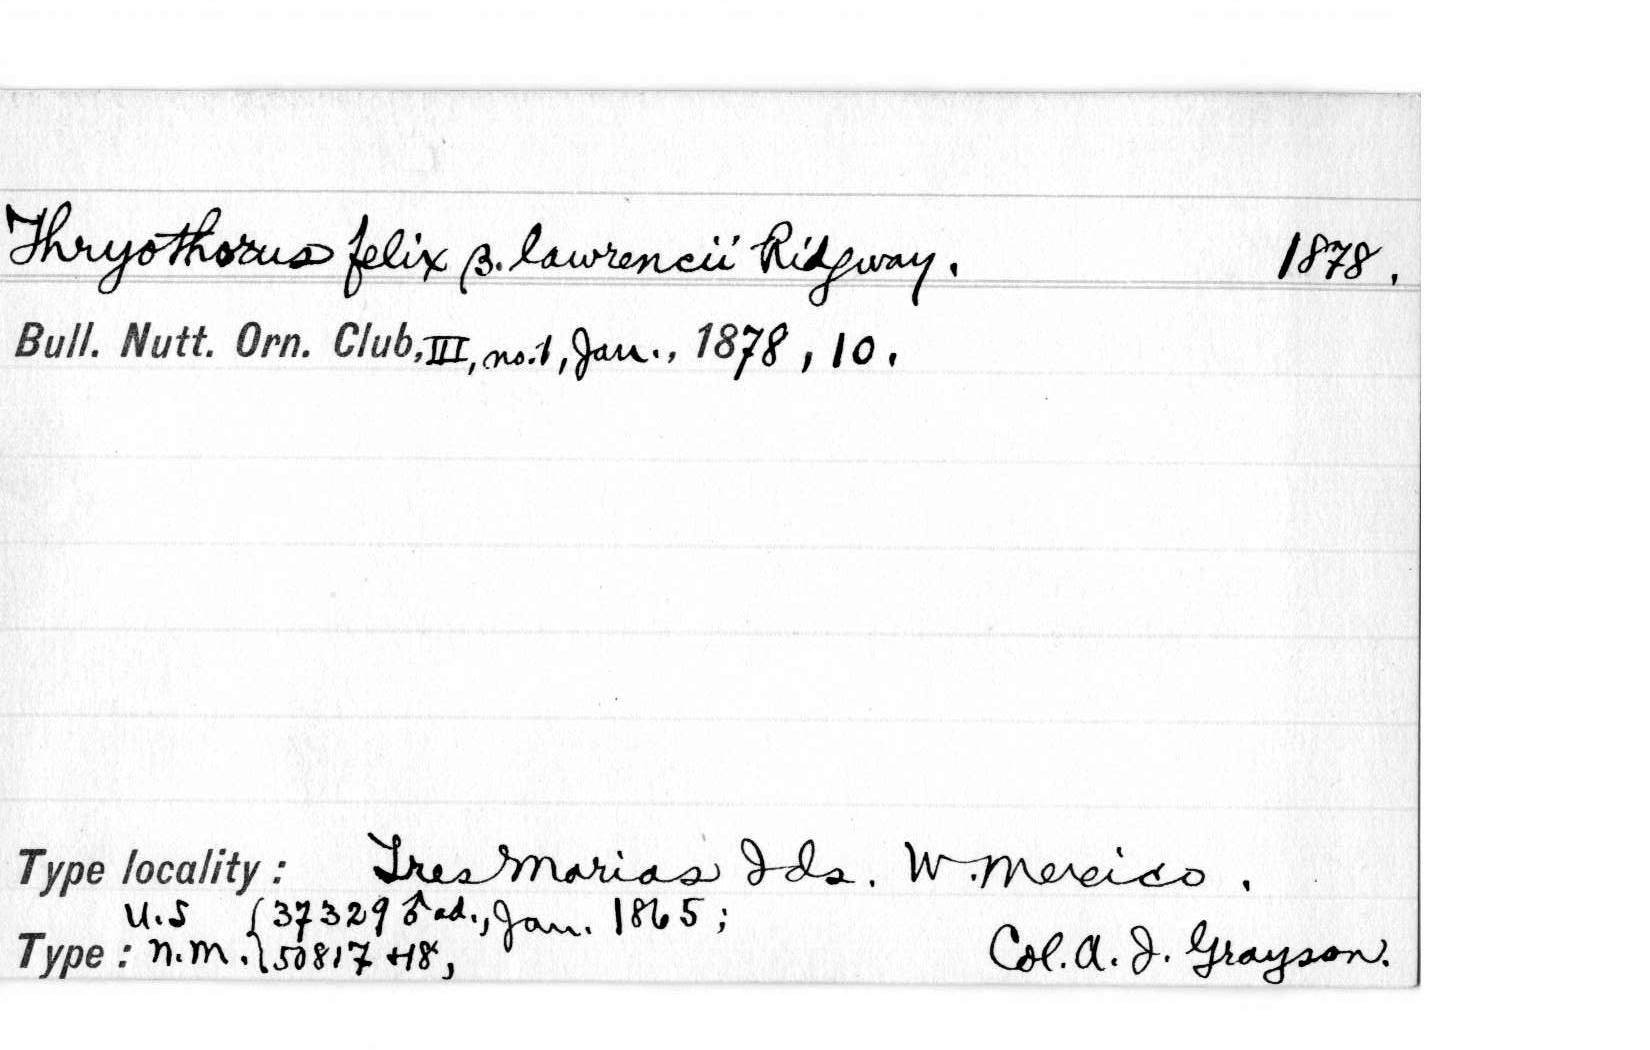 Thryothorus felix β. lawrencii Ridgway. 1878.
Bull. Nutt. Orn. Club, III, no.1, Jan., 1878, 10.
Type locality: Tres Marias Ids. W. Mexico.
U.S { 37329 ♂ ad., Jan. 1865;
Type: N.M. { 50817 Col. A. J. Grayson.